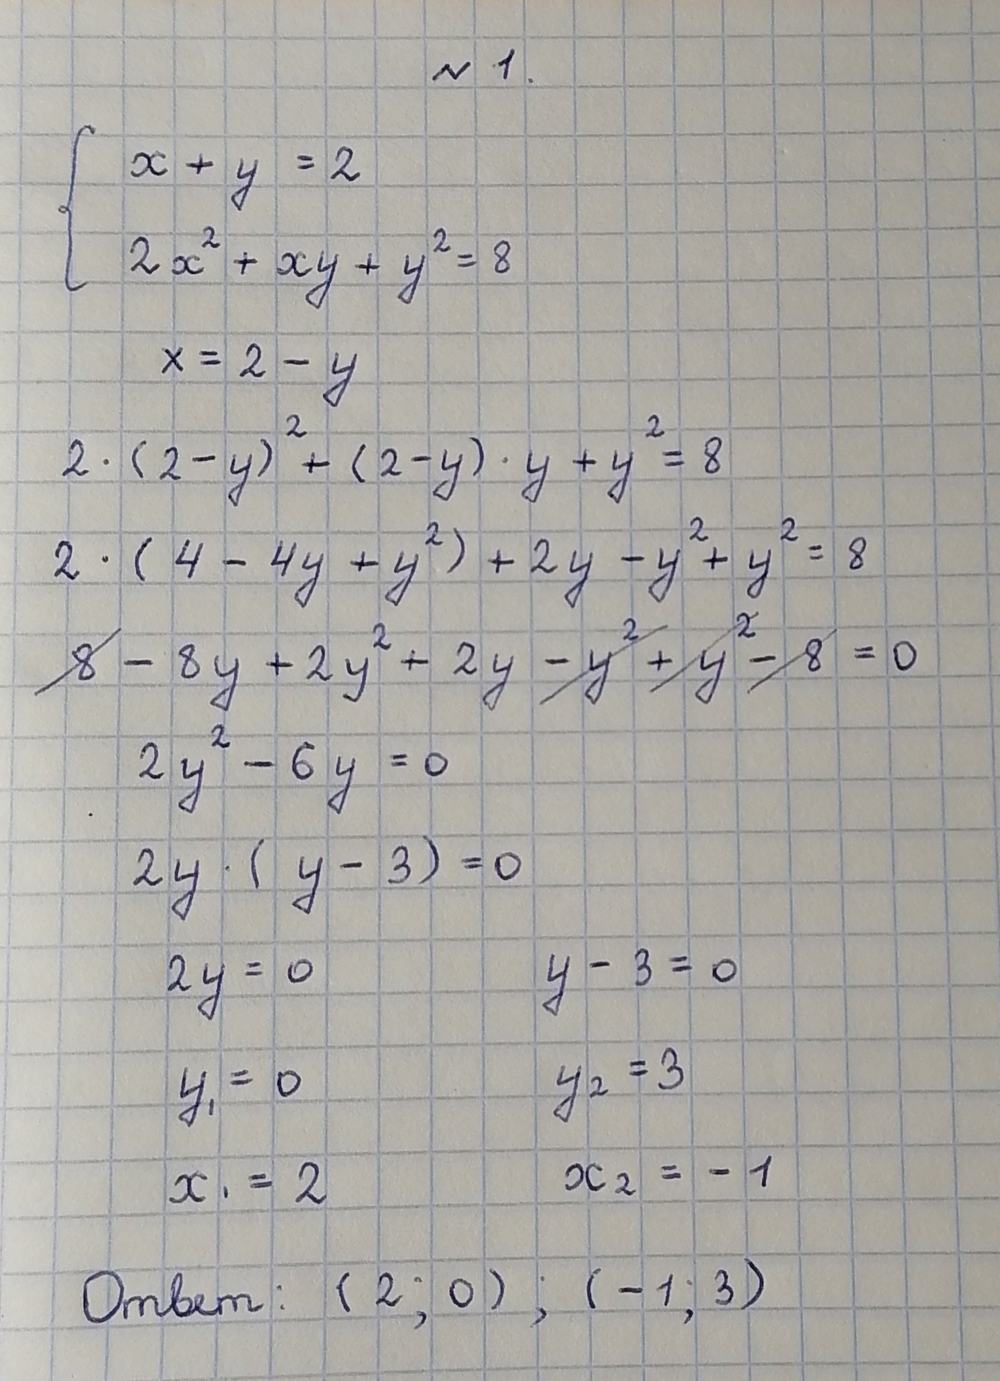 № 1.
x + y = 2
2x² + xy + y² = 8
x = 2 - y
2 · (2 - y)² + (2 - y) · y + y² = 8
2 · (4 - 4y + y²) + 2y - y² + y² = 8
8 - 8y + 2y² + 2y - y² + y² - 8 = 0
2y² - 6y = 0
2y · (y - 3) = 0
2y = 0 y - 3 = 0
y₁ = 0 y₂ = 3
x₁ = 2 x₂ = -1
Ответ: (2; 0) ; (-1; 3)